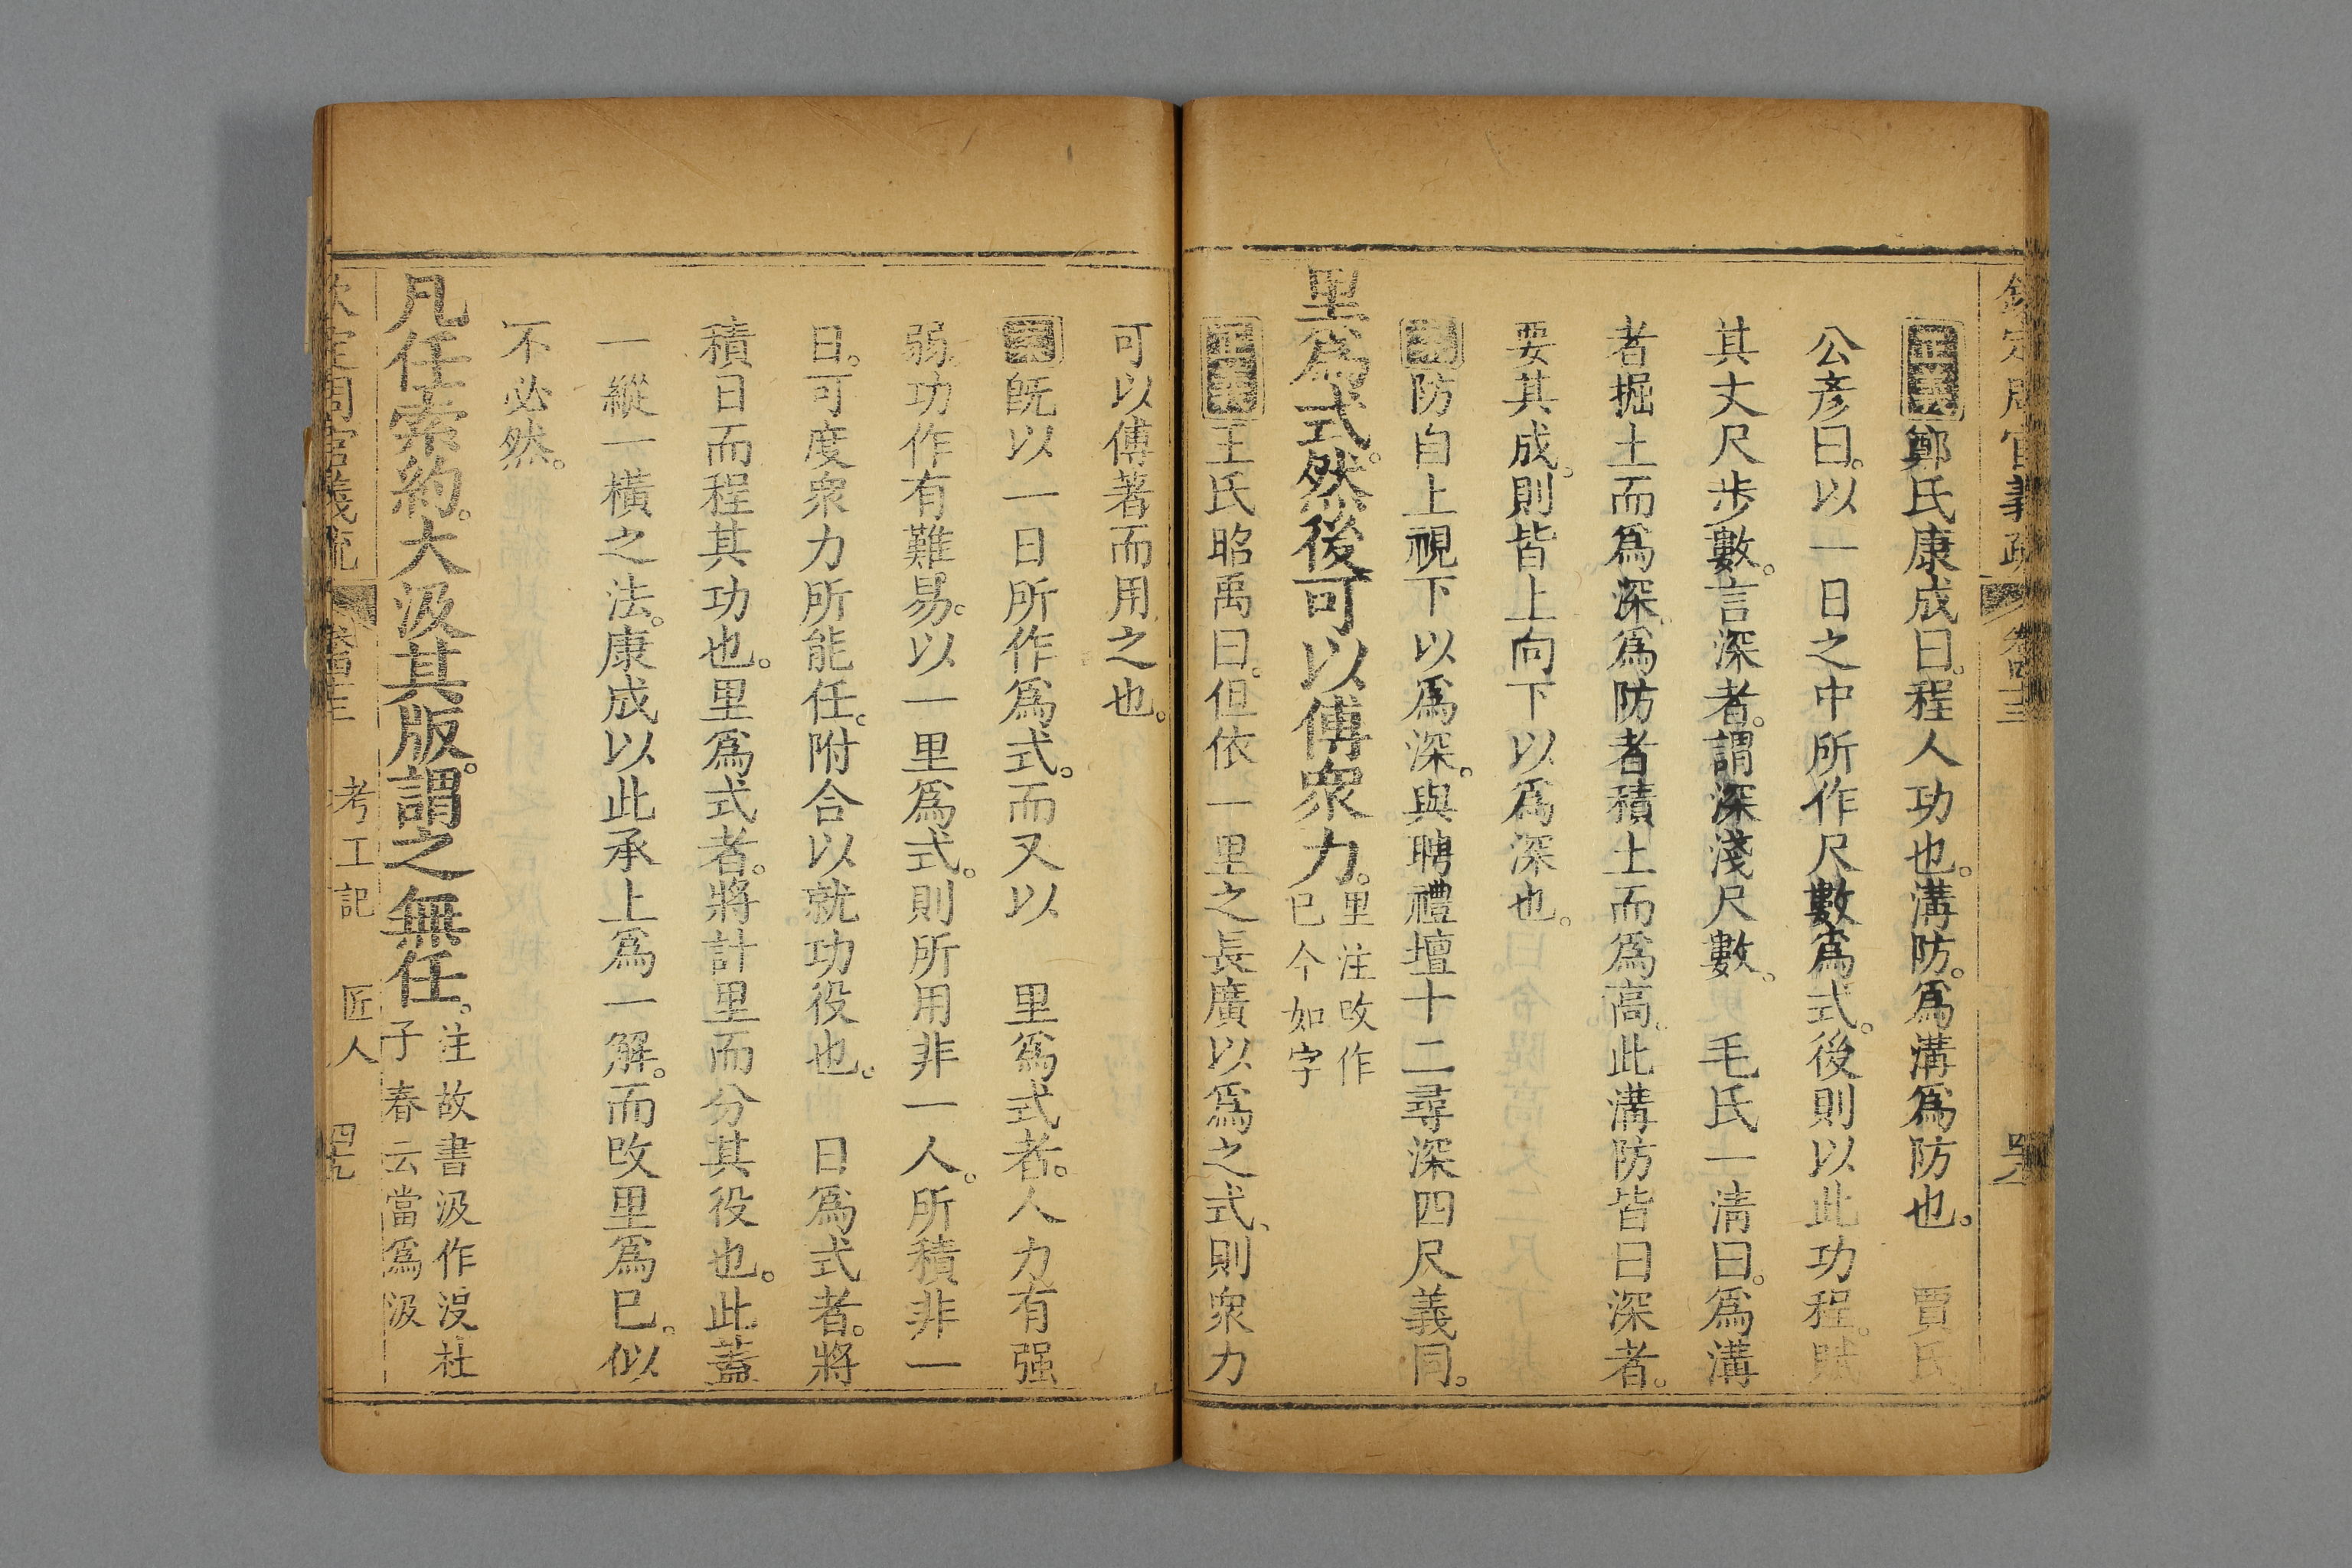 欽定周官義疏 卷四十三
正義鄭氏康成曰。程人功也。溝防。爲溝爲防也。 賈氏
公彦曰。以一日之中所作尺數爲式。後則以此功程。賦
其丈尺步數。言深者。謂深淺尺數。 毛氏一清曰。爲溝
者掘土而爲深。爲防者積土而爲高。此溝防皆曰深者。
要其成。則皆上向下以爲深也。
防自上視下以爲深。與聘禮壇十二尋深四尺義同。
里爲式。然後可以傅衆力。里注改作
已今如字
正義王氏昭禹曰。但依一里之長廣以爲之式、則衆力
可以傅著而用之也。
旣以一日所作爲式。而又以 里爲式者。人力有强
弱。功作有難易。以一里爲式。則所用非一人。所積非一
日。可度衆力所能任。附合以就功役也。 日爲式者。將
積日而程其功也。里爲式者。將計里而分其役也。此蓋
一縱一橫之法。康成以此承上爲一解。而改里爲已。似
不必然。
凡任索約。大汲其版。謂之無任。注故書汲作沒杜
子春云當爲汲
欽定周官義疏 卷四十三 考工記 匠人 四九